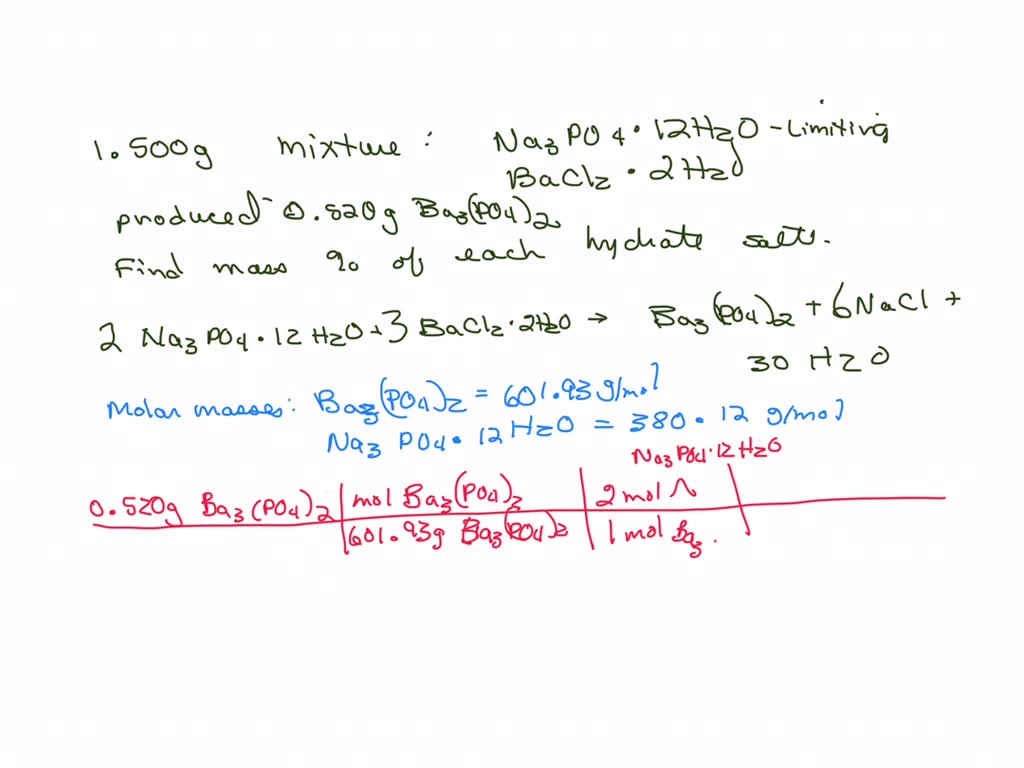 1.500g mixture: Na3PO4·12H2O - Limiting
BaCl2·2H2O
produced 0.520g Ba3(PO4)2
Find mass % of each hydrate salts.
2 Na3PO4·12H2O + 3 BaCl2·2H2O → Ba3(PO4)2 + 6NaCl +
30 H2O
Molar masses: Ba3(PO4)2 = 601.93 g/mol
Na3PO4·12H2O = 380.12 g/mol
Na3PO4·12H2O
0.520g Ba3(PO4)2 | mol Ba3(PO4)2 | 2 mol ^
601.93g Ba3(PO4)2 | 1 mol Ba3.